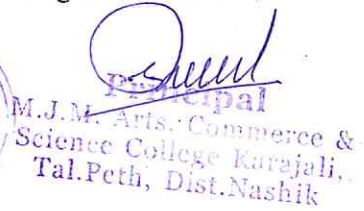 Principal
M.J.M. Arts, Commerce &
Science College Karajali,
Tal.Peth, Dist.Nashik